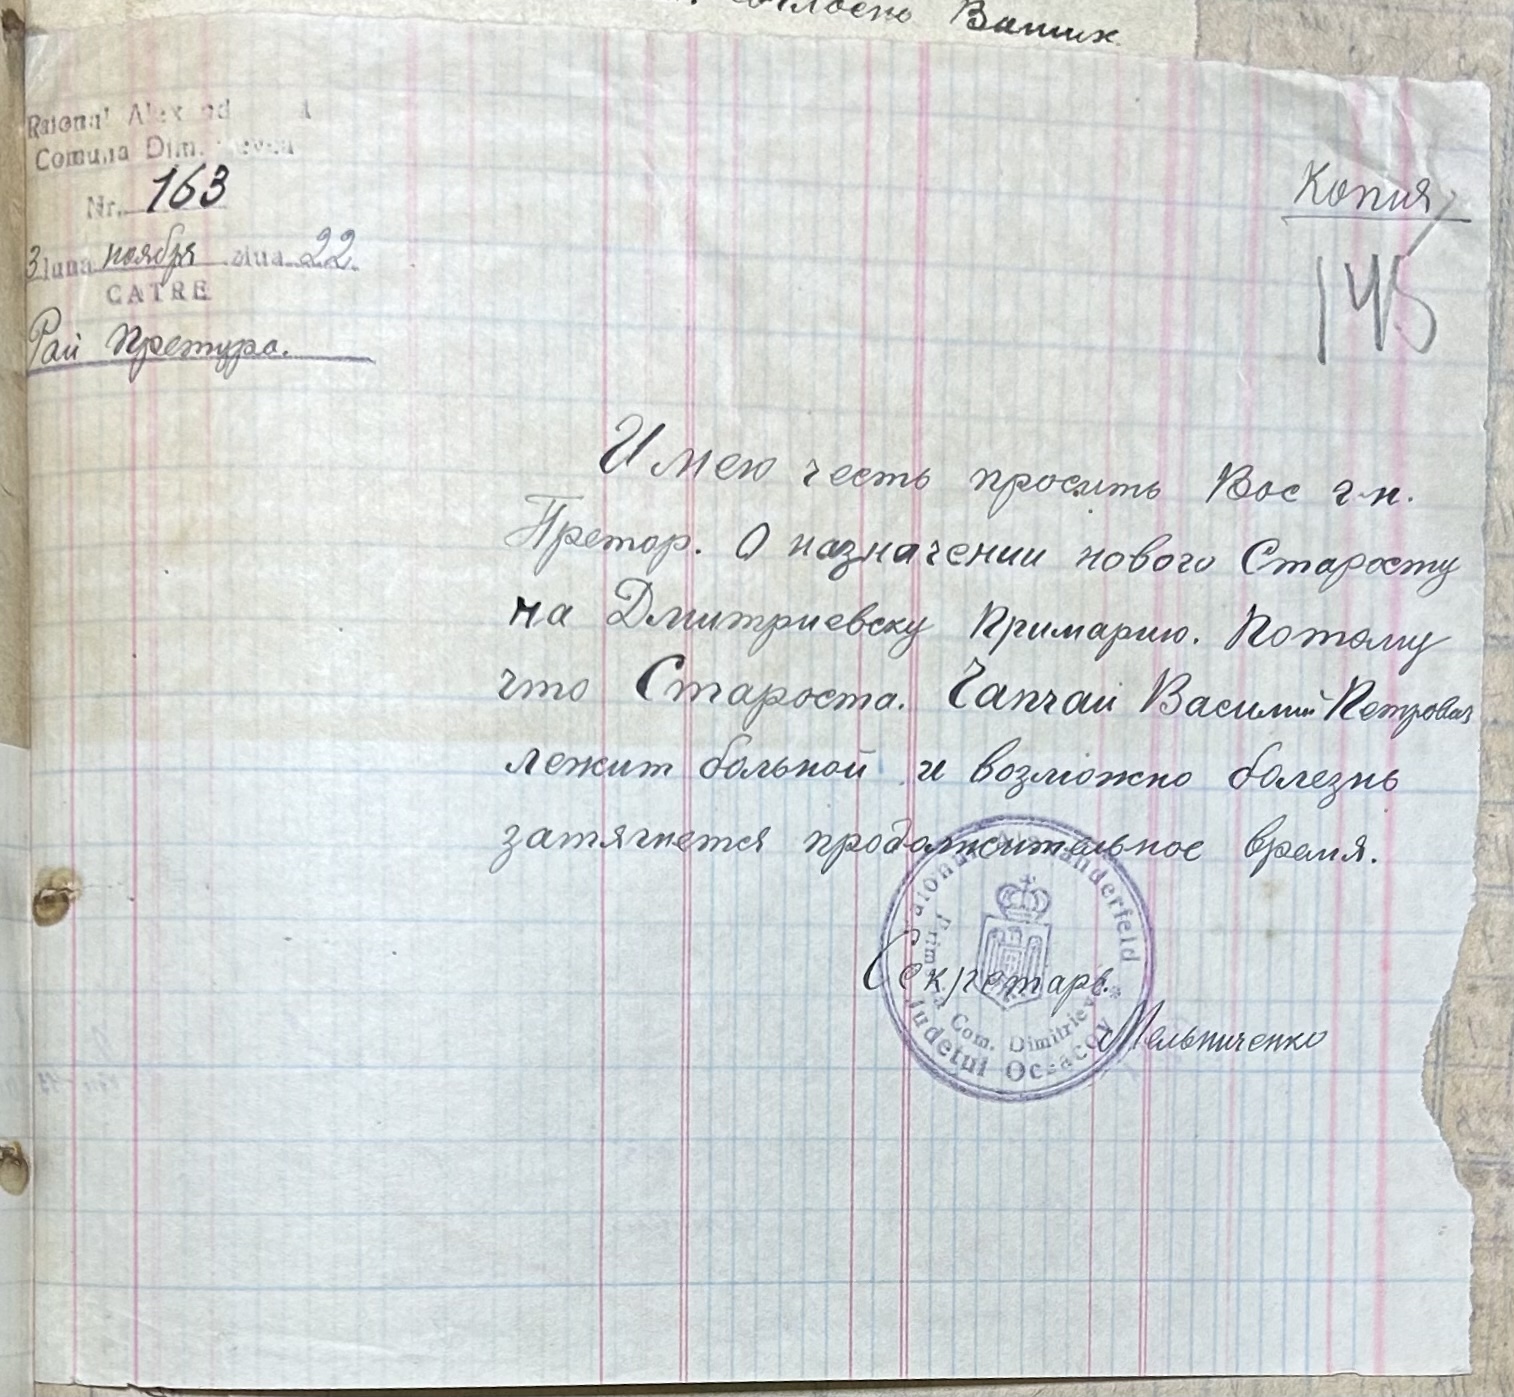 согласно Ваших
Raionul Alex nd
Comuna Dim. evca
Nr. 163
3 luna ноября ziua 22
CATRE
Рай Претура.
Копия
145
Имею честь просить Вас г-н.
Претор. О назначении нового Старосту
на Дмитриевску Примарию. Потому
что Староста. Чапчай Василий Петрович
лежит больной и возможно болезнь
затягнется продолжительное время.
Секретарь.
Мельниченко
Raionul Alexanderfeld
Judetul Ocsacov *
Com. Dimitriev